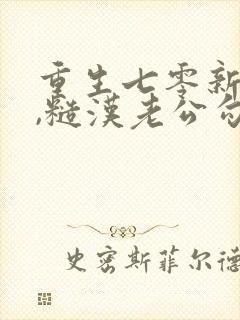 重生七零新
,糙汉老公勾
史密斯菲尔德